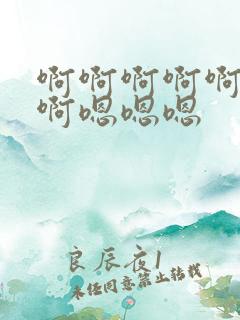 啊啊啊啊啊
啊嗯嗯嗯
良辰夜1
未经同意禁止转载